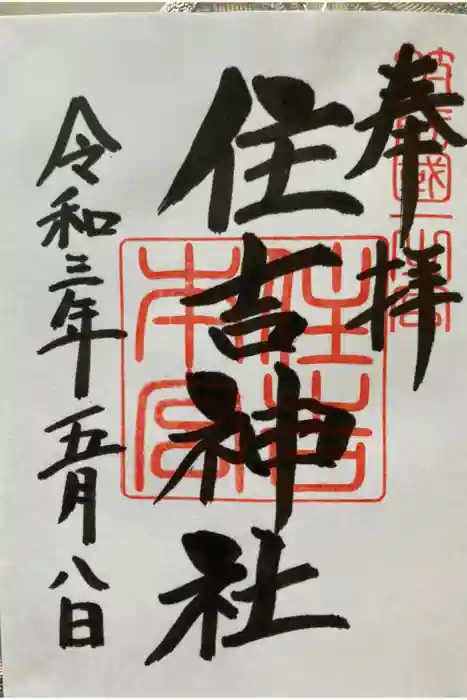 奉拝
筑前國一之宮
住吉神社
住吉本宮
令和三年五月八日